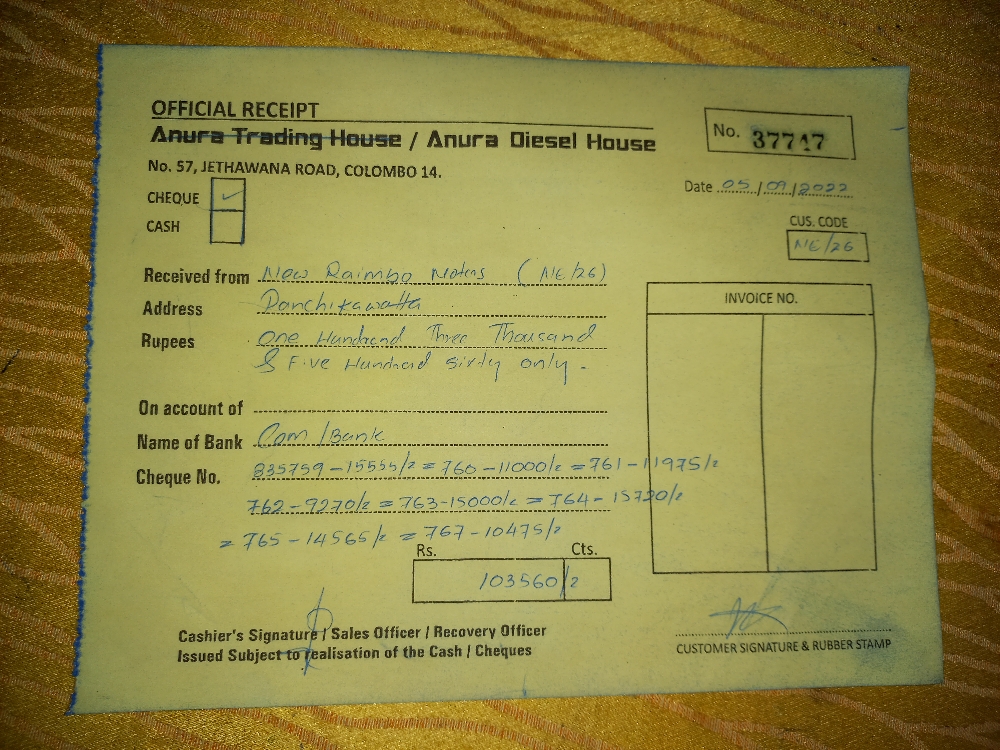 OFFICIAL RECEIPT
Anura Trading House / Anura Diesel House
No. 37747
No. 57, JETHAWANA ROAD, COLOMBO 14.
Date 05/09/2022
CHEQUE ✓
CASH
CUS. CODE
NE/26
Received from New Raimbo Motors (NE/26)
Address Panchikawatta
Rupees One Hundred Three Thousand
& Five Hundred Sixty only.
INVOICE NO.
On account of
Name of Bank Com/Bank
Cheque No. 335759-15555/= 760-11000/= 761-11975/=
762-9270/= 763-15000/= 764-15720/=
= 765-14565/= 767-10475/=
Rs. Cts.
103560/=
Cashier's Signature / Sales Officer / Recovery Officer
Issued Subject to realisation of the Cash / Cheques
CUSTOMER SIGNATURE & RUBBER STAMP